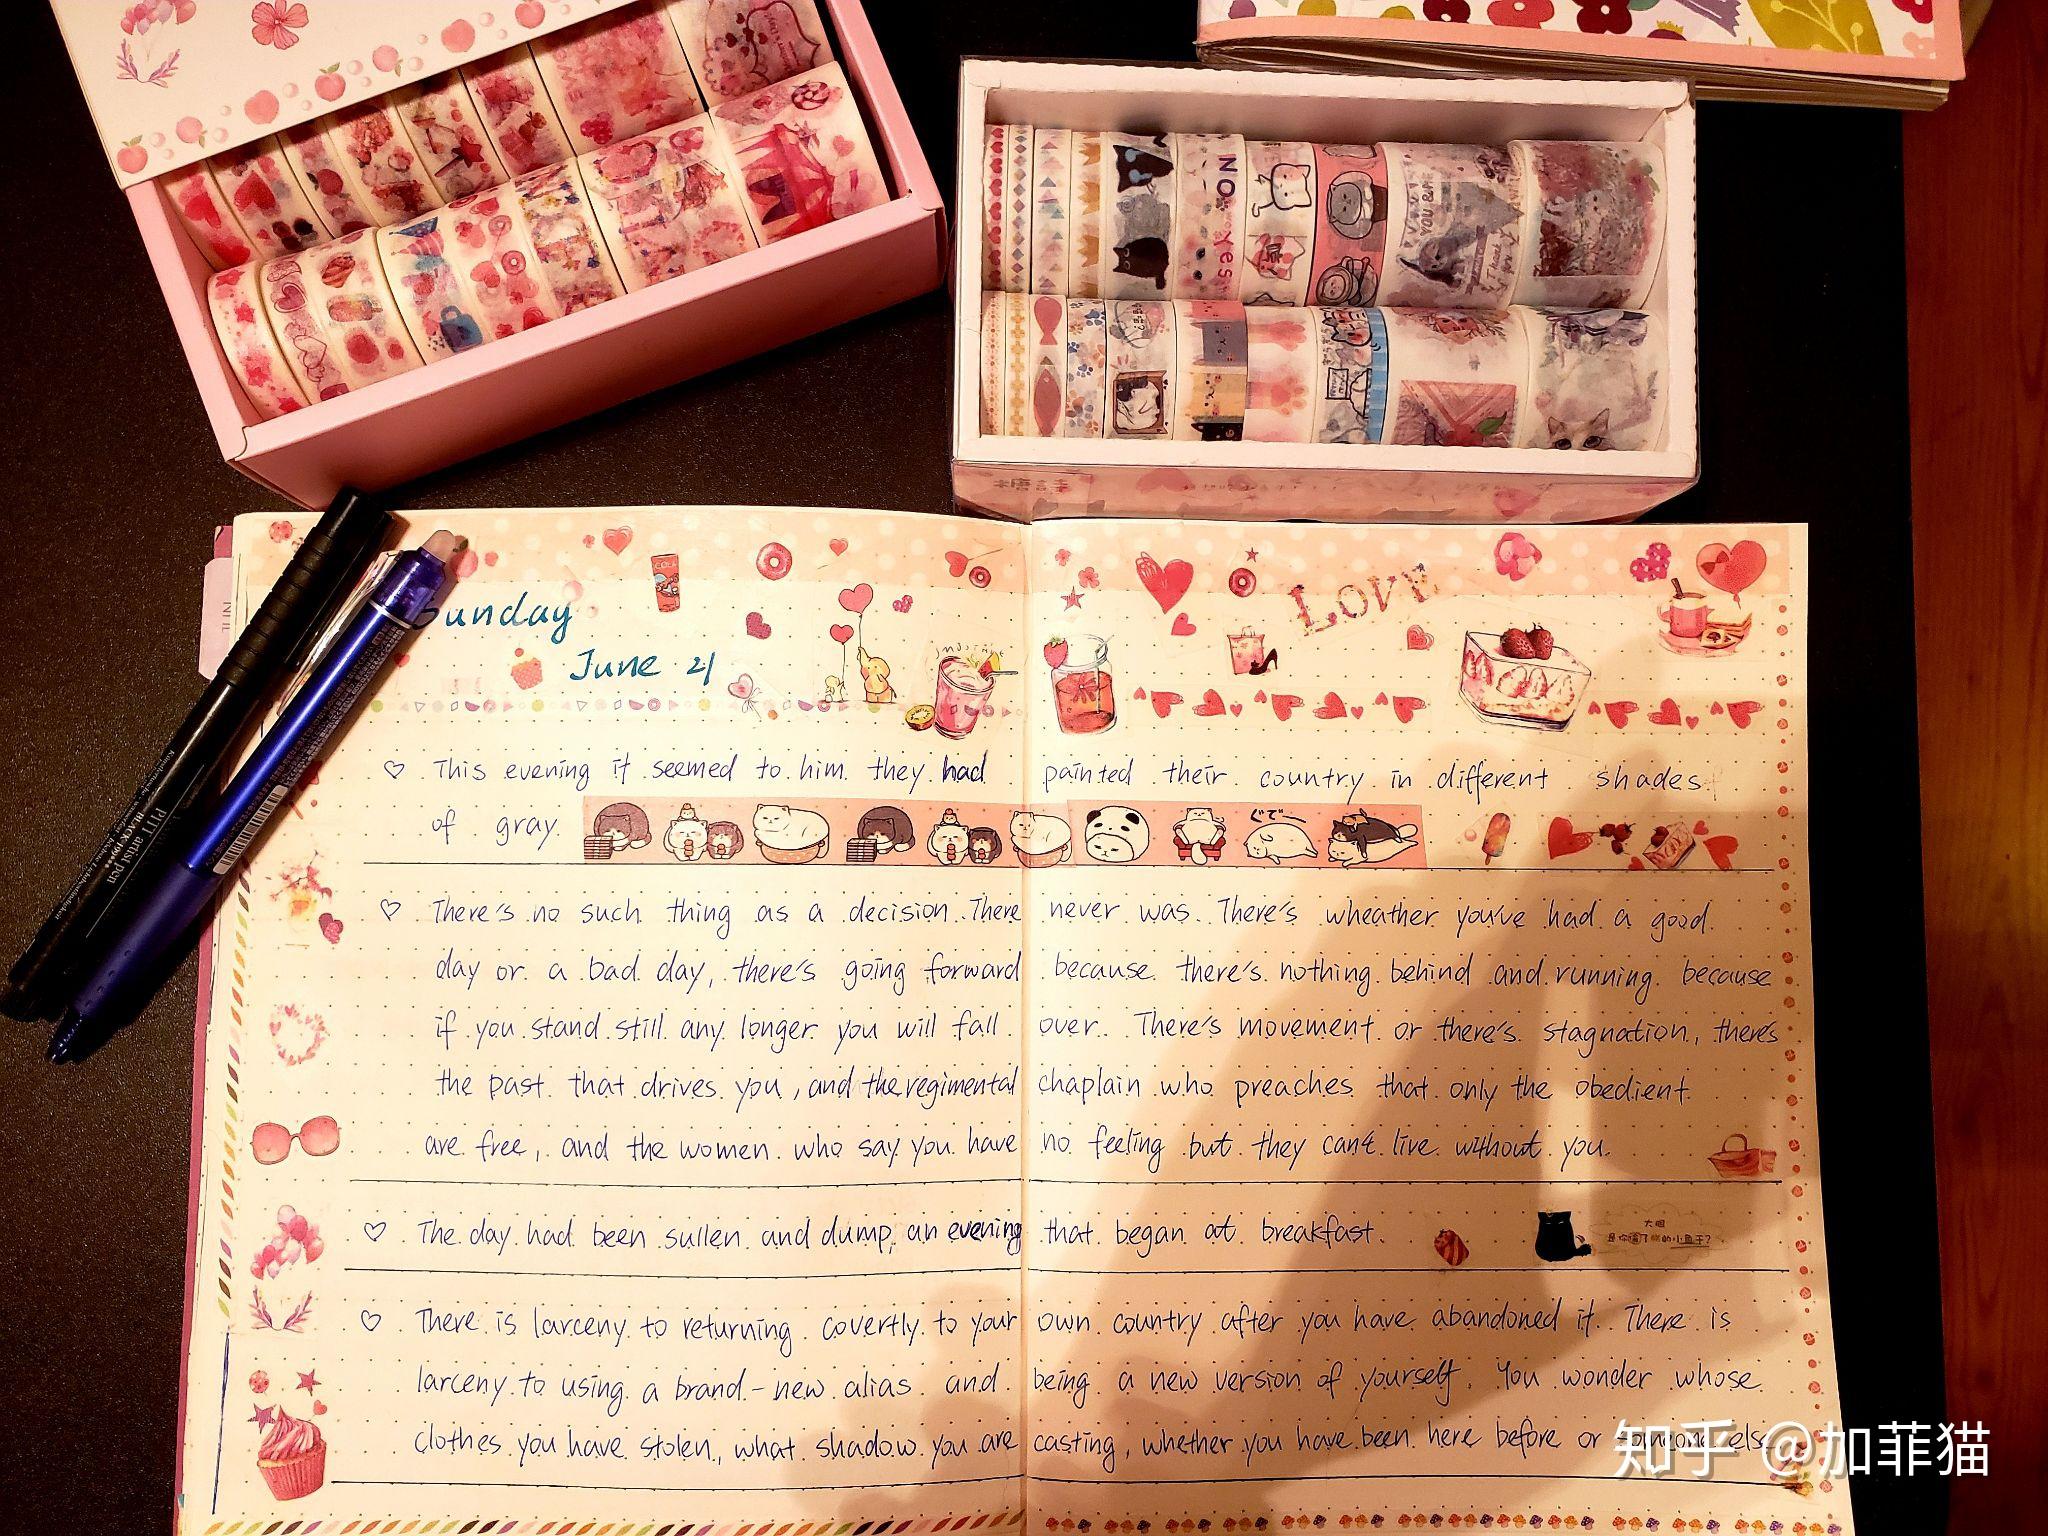 NO
Yes
YOU & ME
Thank you
LOVE
Sunday
June 21
SMOOTHIE
COLA
PITT artist pen
This evening it seemed to him they had painted their country in different shades
of gray.
There's no such thing as a decision. There never was. There's wheather you've had a good
day or a bad day, there's going forward because there's nothing behind and running because
if you stand still any longer you will fall over. There's movement or there's stagnation, there's
the past that drives you, and the regimental chaplain who preaches that only the obedient
are free, and the women who say you have no feeling but they can't live without you.
The day had been sullen and dump, an evening that began at breakfast.
大胆
是你偷了我的小鱼干?
There is larceny to returning covertly to your own country after you have abandoned it. There is
larceny to using a brand-new alias and being a new version of yourself. You wonder whose
clothes you have stolen, what shadow you are casting, whether you have been here before or someone els
知乎 @加菲猫